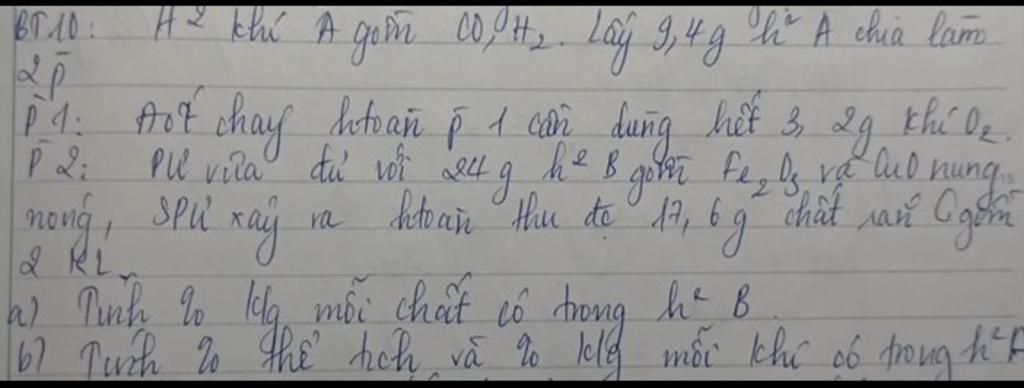 BT10: H² khí A gồm CO, H₂. Lấy 9,4g h² A chia làm
2 p̄
p̄ 1: Đốt cháy htoàn p̄ 1 cần dùng hết 3,2g khí O₂.
p̄ 2: PƯ vừa đủ với 24g h² B gồm Fe₂O₃ và CuO nung
nóng, SPƯ xảy ra htoàn thu đc 17,6g chất rắn C gồm
2 KL
a) Tính % klg mỗi chất có trong h² B
b) Tính % thể tích và % klg mỗi khí có trong h² A